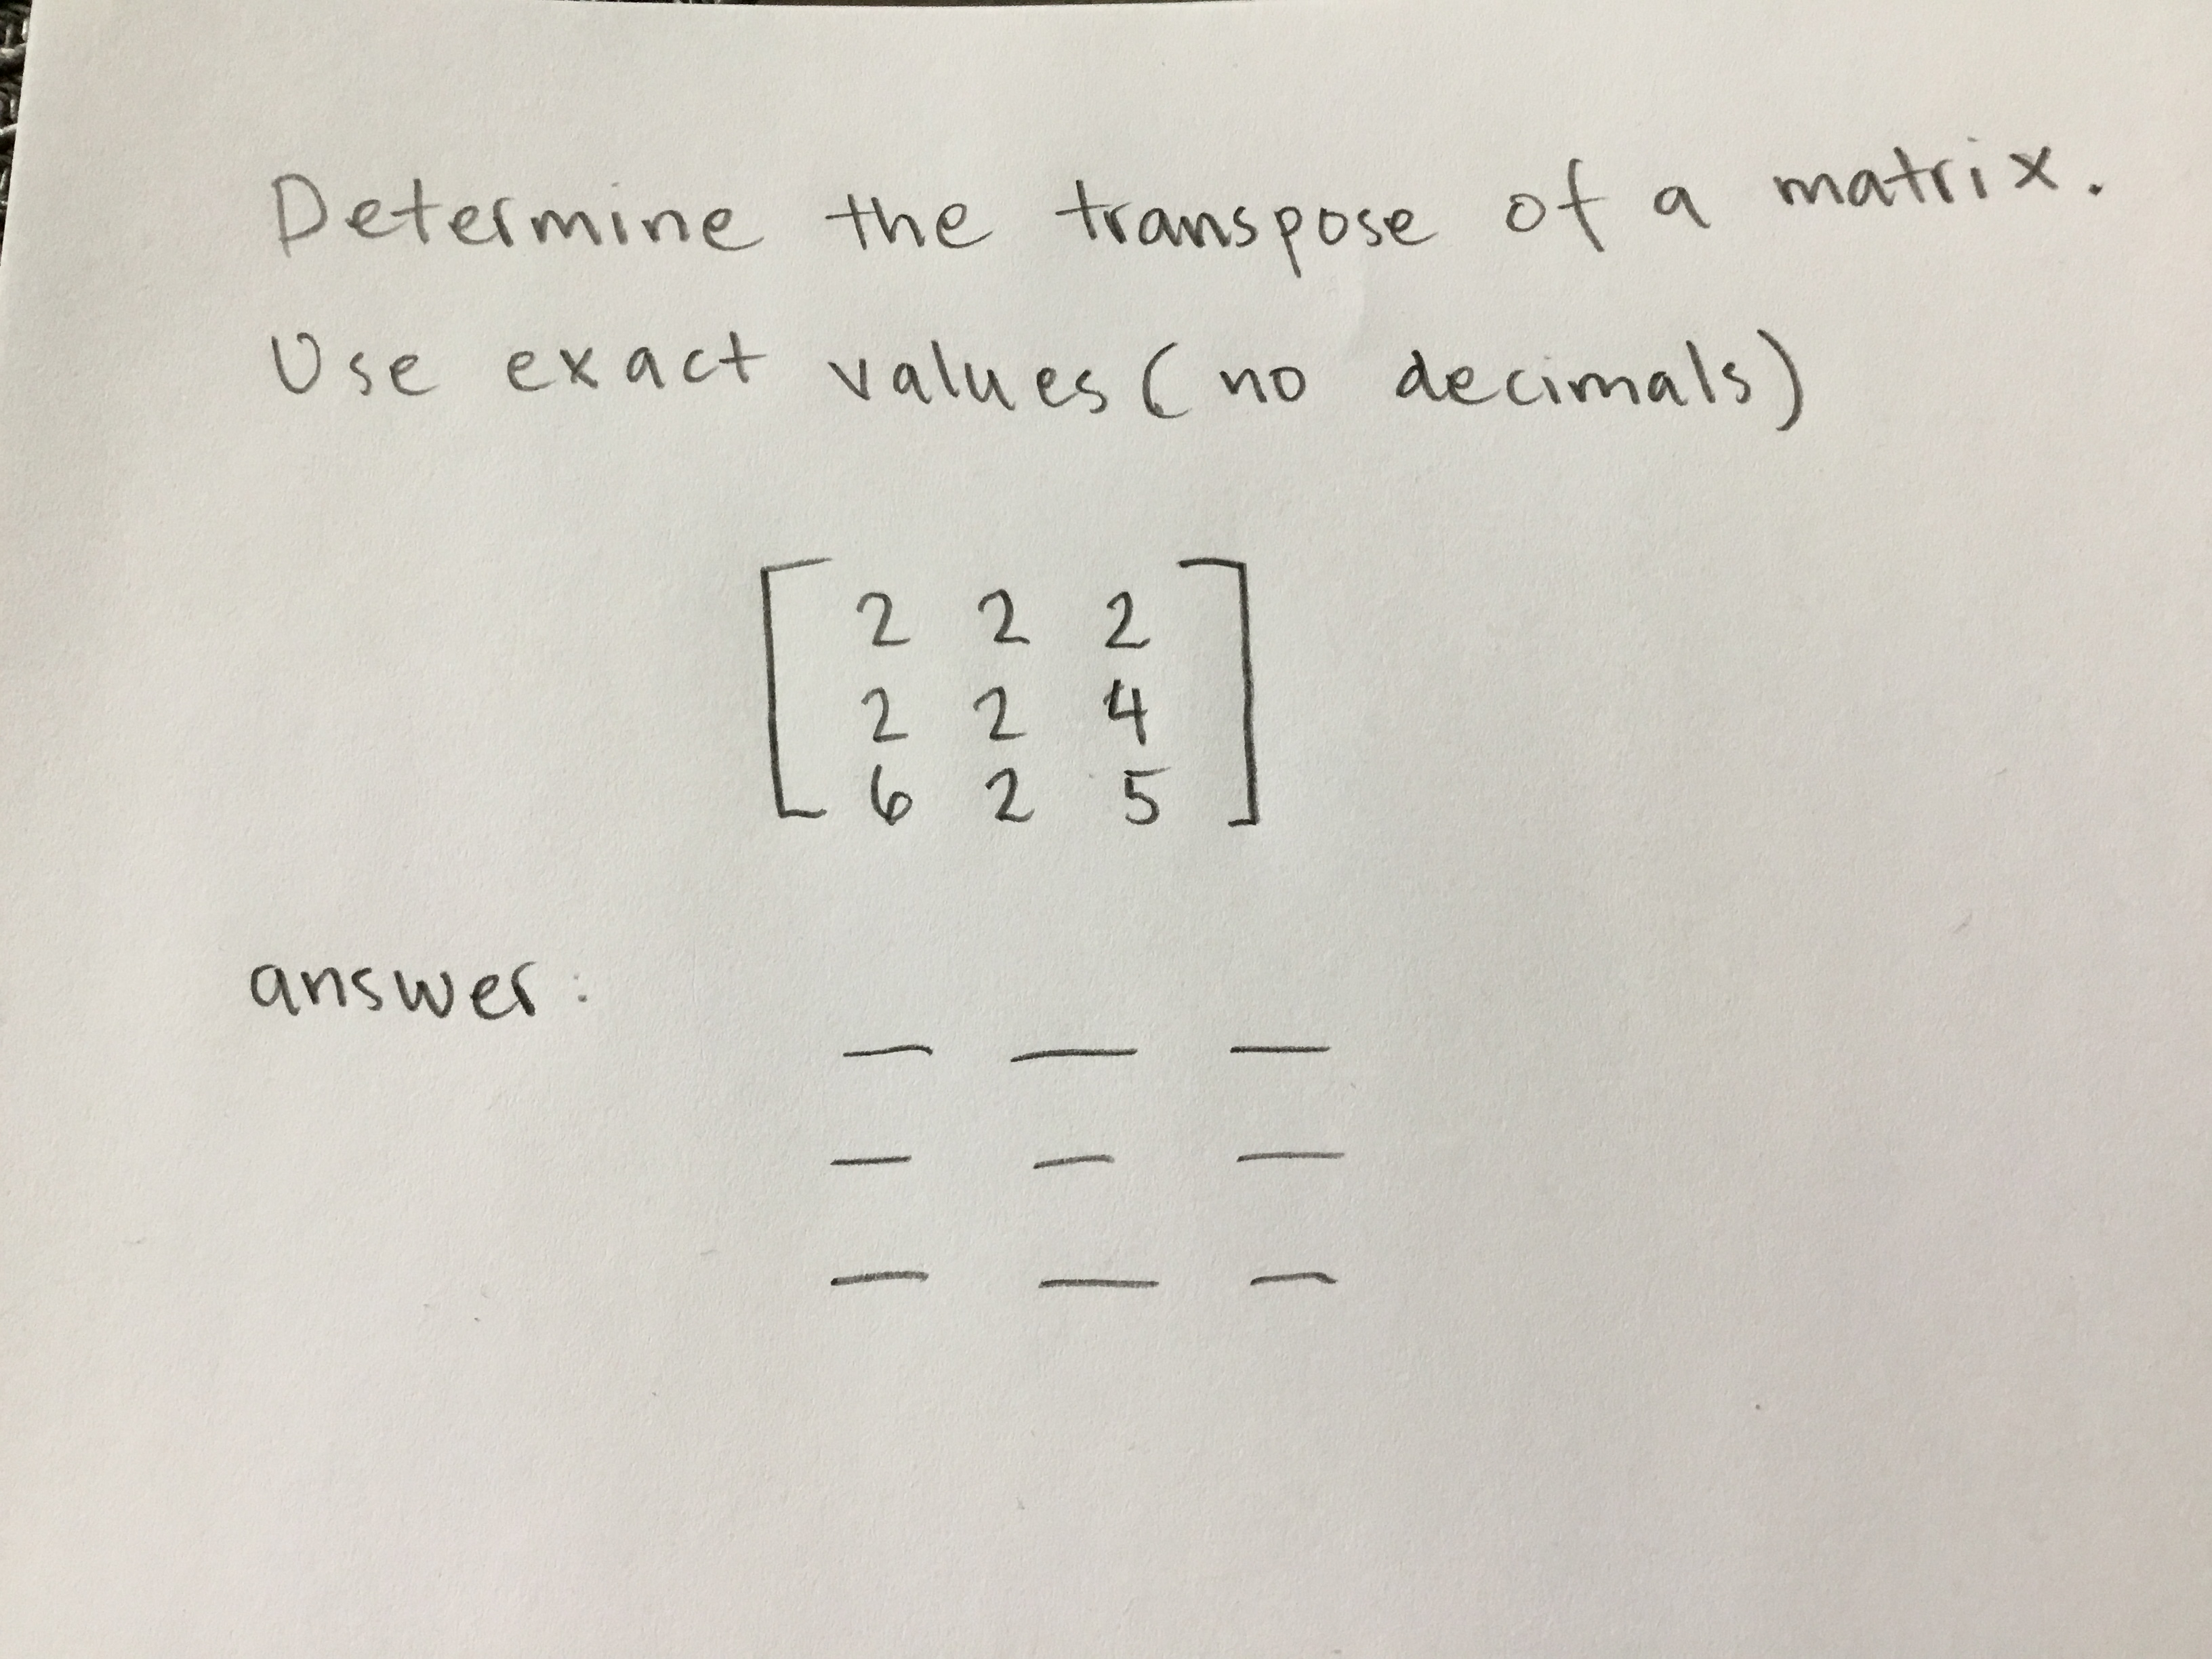 Determine the transpose of a matrix.
Use exact values (no decimals)
2 2 2
2 2 4
6 2 5
answer: